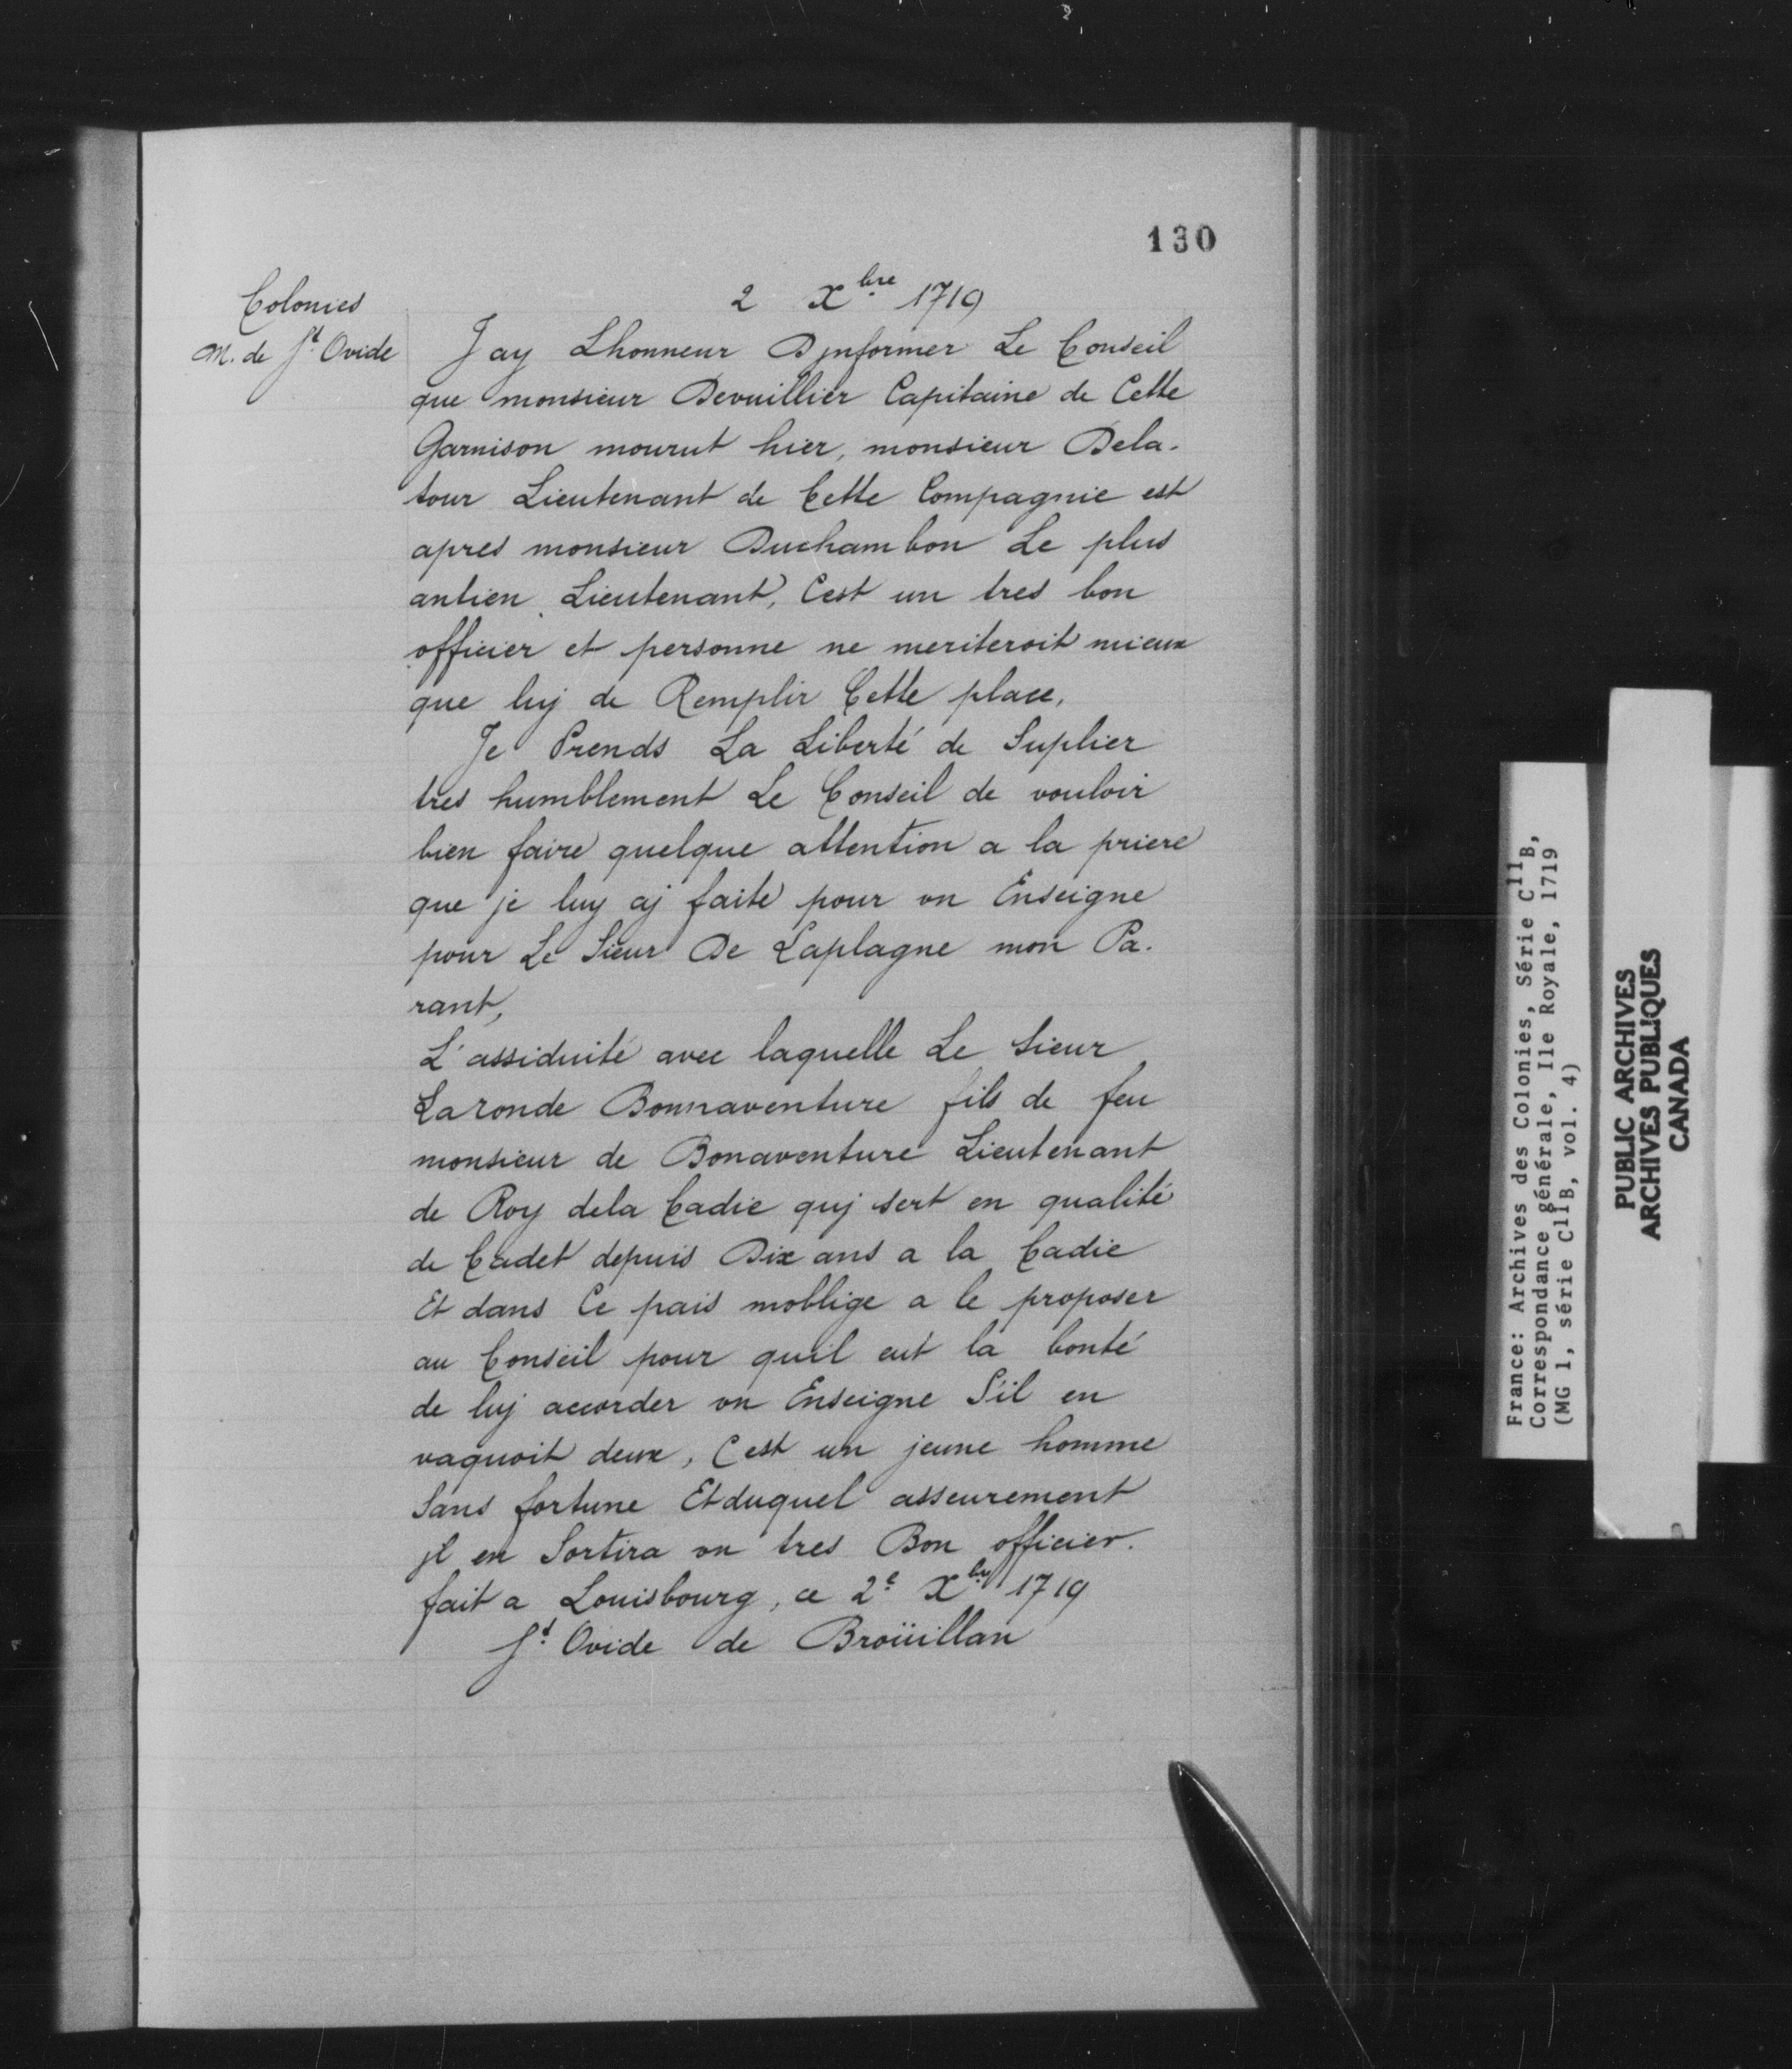 130
Colonies
M. de St. Ovide
2 Xbre 1719
Jay Lhonneur Dynformer Le Conseil
que monsieur Devuillier Capitaine de Cette
Garnison mourut hier, monsieur Dela-
tour Lieutenant de Cette Compagnie est
apres monsieur Duchambon Le plus
antien Lieutenant, Cest un tres bon
officier et personne ne meriteroit mieux
que luj de Remplir Cette place,
Je Prends La Liberté de Suplier
tres humblement Le Conseil de vouloir
bien faire quelque attention a la priere
que je luy aj faite pour vn Enseigne
pour Le Sieur De Laplagne mon Pa-
rant,
L'assiduité avec laquelle Le Sieur
Laronde Bonnaventure fils de feu
monsieur de Bonaventure Lieutenant
de Roy dela Cadie quj sert en qualité
de Cadet depuis Dix ans a la Cadie
Et dans Ce pais moblige a le proposer
au Conseil pour quil eut la bonté
de luj accorder vn Enseigne S'il en
vaquoit deux, Cest un jeune homme
Sans fortune Etduquel asseurement
jl en Sortira vn tres Bon officier.
fait a Louisbourg, ce 2e Xbre 1719
St. Ovide de Broüillan
France: Archives des Colonies, Série C11B,
Correspondance générale, Ile Royale, 1719
(MG 1, série C11B, vol. 4)
PUBLIC ARCHIVES
ARCHIVES PUBLIQUES
CANADA